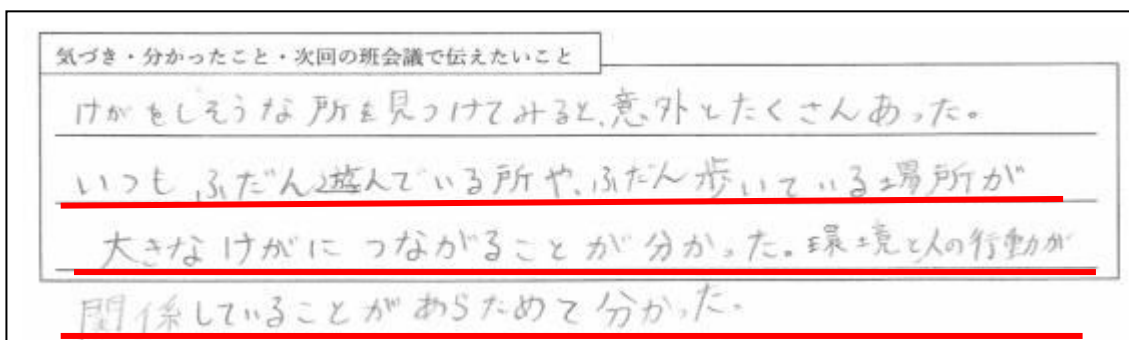 気づき・分かったこと・次回の班会議で伝えたいこと
けがをしそうな所を見つけてみると、意外とたくさんあった。
いつも、ふだん遊んでいる所や、ふだん歩いている場所が
大きなけがにつながることが分かった。環境と人の行動が
関係していることがあらためて分かった。